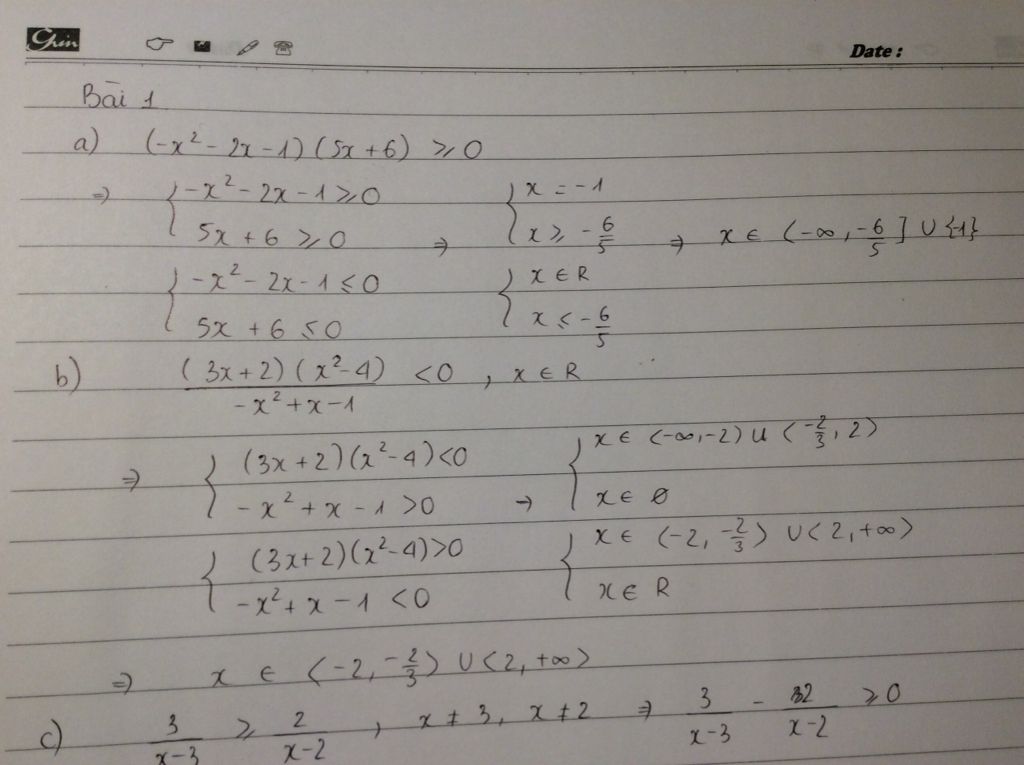 Grin
Date :
Bài 1
a) (-x² - 2x - 1)(5x + 6) ≥ 0
⇒ { -x² - 2x - 1 ≥ 0 { x = -1
5x + 6 ≥ 0 ⇒ x ≥ -6/5 ⇒ x ∈ (-∞, -6/5] ∪ {-1}
{ -x² - 2x - 1 ≤ 0 { x ∈ R
5x + 6 ≤ 0 x ≤ -6/5
b) (3x + 2)(x² - 4) / (-x² + x - 1) < 0 , x ∈ R
⇒ { (3x + 2)(x² - 4) < 0 { x ∈ (-∞, -2) ∪ (-2/3, 2)
-x² + x - 1 > 0 → x ∈ ∅
{ (3x + 2)(x² - 4) > 0 { x ∈ (-2, -2/3) ∪ (2, +∞)
-x² + x - 1 < 0 x ∈ R
⇒ x ∈ (-2, -2/3) ∪ (2, +∞)
c) 3/(x-3) ≥ 2/(x-2) , x ≠ 3, x ≠ 2 ⇒ 3/(x-3) - 2/(x-2) ≥ 0